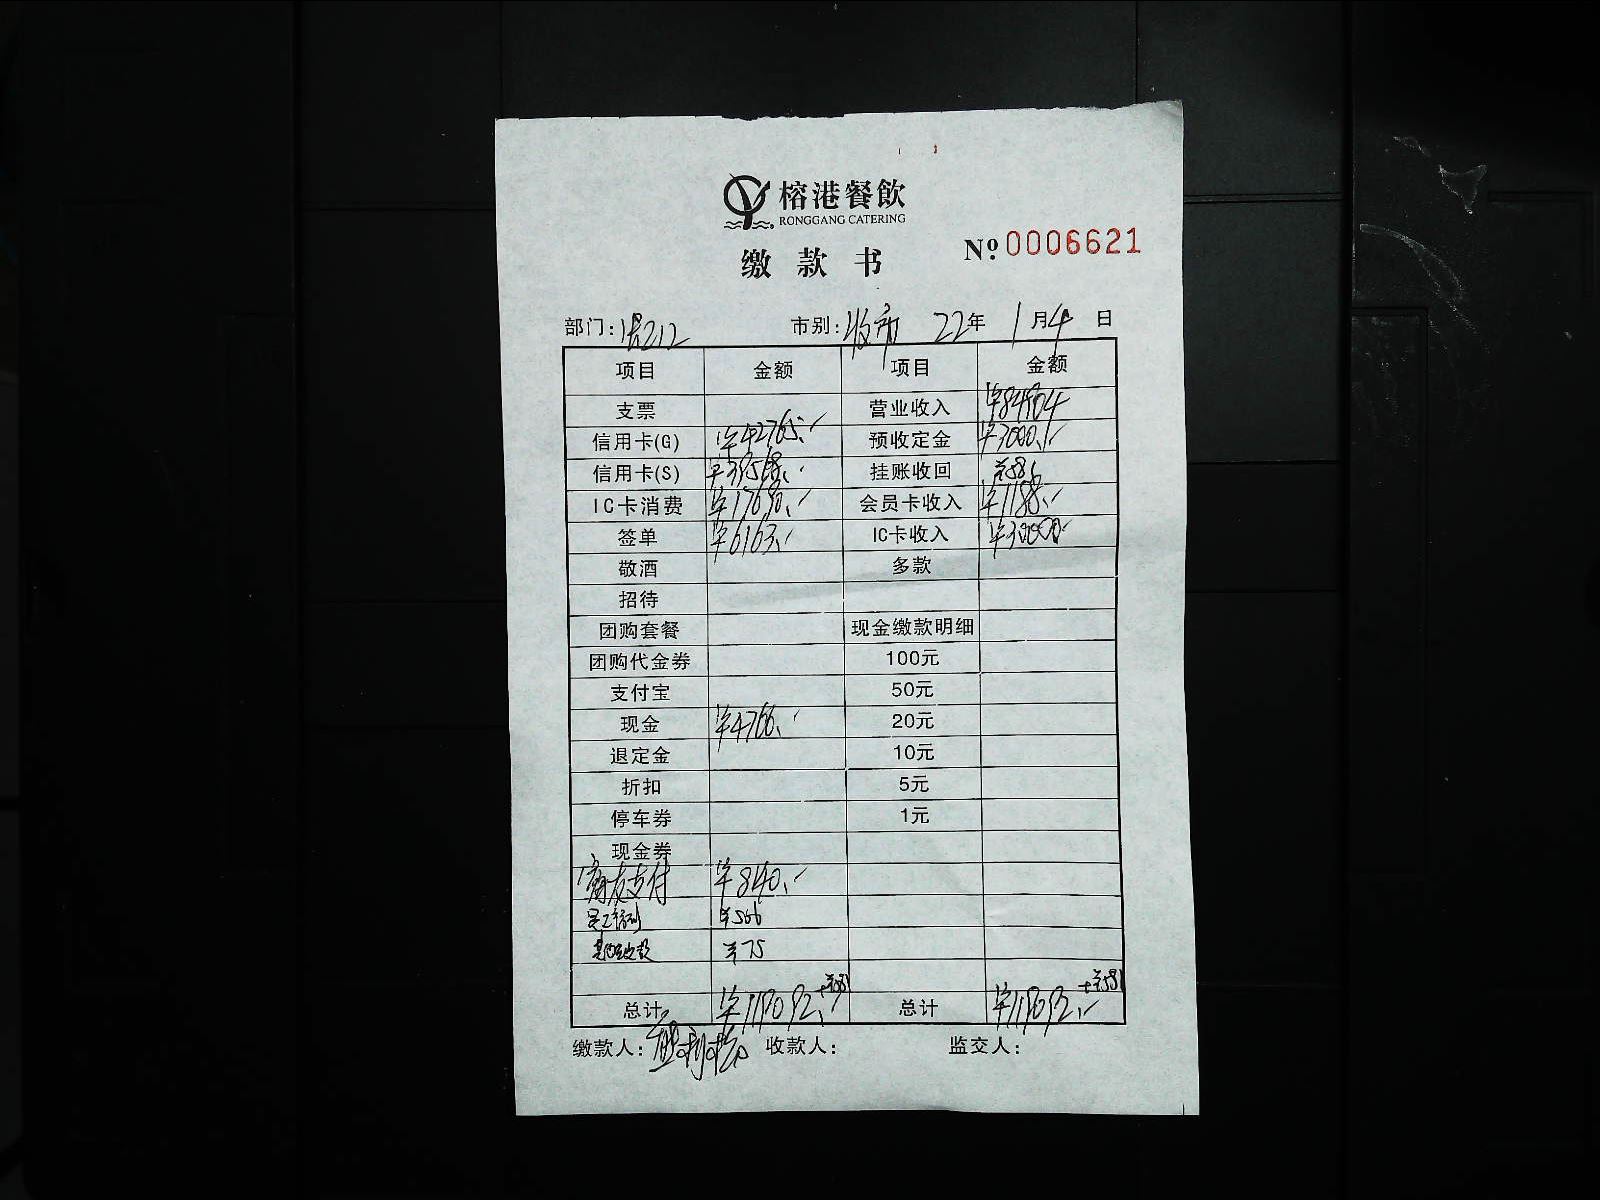 榕港餐飲
RONGGANG CATERING
缴款书 №0006621
部门: 市别:收市 22年1月4日
项目 金额 项目 金额
支票 营业收入 ¥84904
信用卡(G) ¥42765.- 预收定金 ¥3000.-
信用卡(S) 挂账收回 ¥581
IC卡消费 ¥17690.- 会员卡收入 ¥1188.-
签单 ¥6163.- IC卡收入 ¥30000.-
敬酒 多款
招待
团购套餐 现金缴款明细
团购代金券 100元
支付宝 50元
现金 ¥4766.- 20元
退定金 10元
折扣 5元
停车券 1元
现金券
支付 ¥840.-
员工 ¥566
¥75
总计 ¥119092.- +¥581 总计 ¥119092.- +¥581
缴款人: 收款人: 监交人: